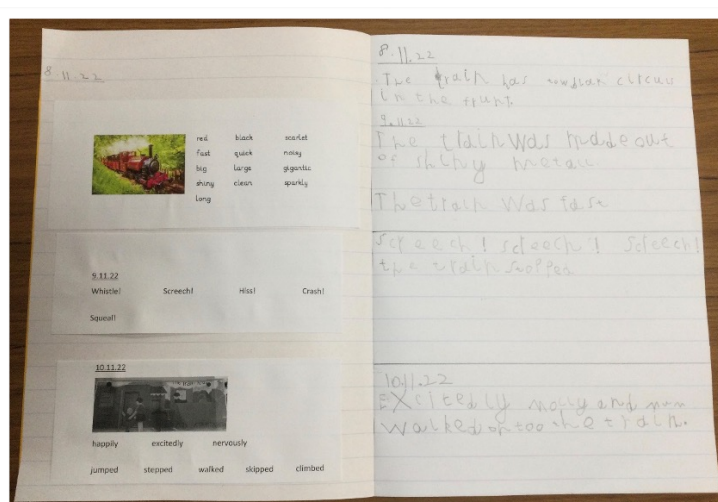 8.11.22
red black scarlet
fast quick noisy
big large gigantic
shiny clean sparkly
long
9.11.22
Whistle! Screech! Hiss! Crash!
Squeal!
10.11.22
happily excitedly nervously
jumped stepped walked skipped climbed
8.11.22
The train has circus
in the frunt
9.11.22
The train was made out
of shiny metal.
The train was fast
screech! screech! screech!
the train stopped
10.11.22
EXcitedly molly and mum
walked on too the train.